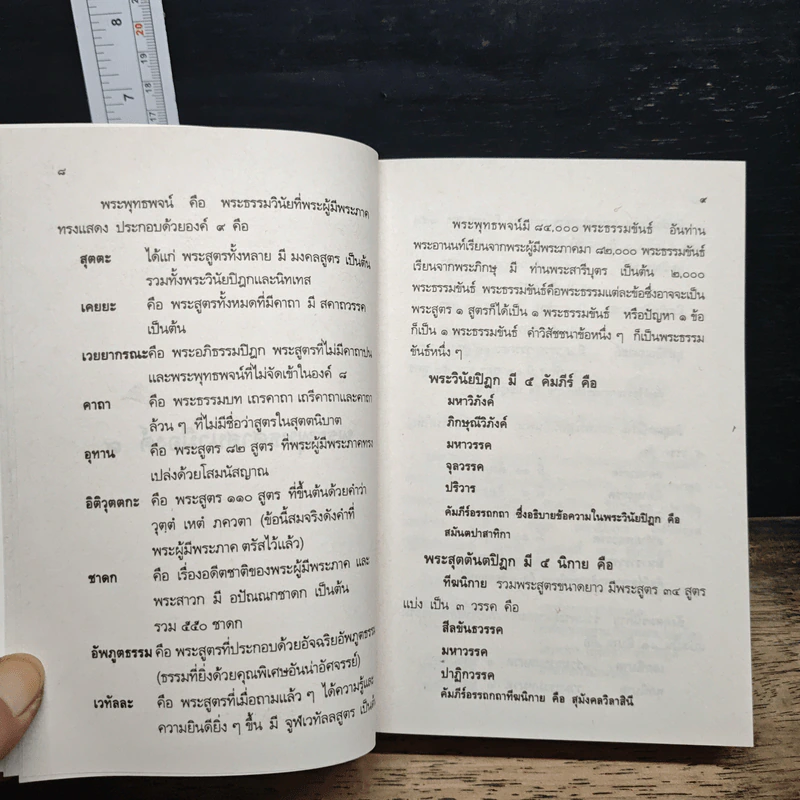 8
20
19
18
7
17
๘
พระพุทธพจน์ คือ พระธรรมวินัยที่พระผู้มีพระภาค
ทรงแสดง ประกอบด้วยองค์ ๙ คือ
สุตตะ ได้แก่ พระสูตรทั้งหลาย มี มงคลสูตร เป็นต้น
รวมทั้งพระวินัยปิฎกและนิทเทส
เคยยะ คือ พระสูตรทั้งหมดที่มีคาถา มี สคาถวรรค
เป็นต้น
เวยยากรณะ คือ พระอภิธรรมปิฎก พระสูตรที่ไม่มีคาถาปน
และพระพุทธพจน์ที่ไม่จัดเข้าในองค์ ๘
คาถา คือ พระธรรมบท เถรคาถา เถรีคาถาและคาถา
ล้วน ๆ ที่ไม่มีชื่อว่าสูตรในสุตตนิบาต
อุทาน คือ พระสูตร ๘๒ สูตร ที่พระผู้มีพระภาคทรง
เปล่งด้วยโสมนัสญาณ
อิติวุตตกะ คือ พระสูตร ๑๑๐ สูตร ที่ขึ้นต้นด้วยคำว่า
วุตฺตํ เหตํ ภควตา (ข้อนี้สมจริงดังคำที่
พระผู้มีพระภาค ตรัสไว้แล้ว)
ชาดก คือ เรื่องอดีตชาติของพระผู้มีพระภาค และ
พระสาวก มี อปัณณกชาดก เป็นต้น
รวม ๕๕๐ ชาดก
อัพภูตธรรม คือ พระสูตรที่ประกอบด้วยอัจฉริยอัพภูตธรรม
(ธรรมที่ยิ่งด้วยคุณพิเศษอันน่าอัศจรรย์)
เวทัลละ คือ พระสูตรที่เมื่อถามแล้ว ๆ ได้ความรู้และ
ความยินดียิ่ง ๆ ขึ้น มี จูฬเวทัลลสูตร เป็นต้น
๙
พระพุทธพจน์มี ๘๔,๐๐๐ พระธรรมขันธ์ อันท่าน
พระอานนท์เรียนจากพระผู้มีพระภาคมา ๘๒,๐๐๐ พระธรรมขันธ์
เรียนจากพระภิกษุ มี ท่านพระสารีบุตร เป็นต้น ๒,๐๐๐
พระธรรมขันธ์ พระธรรมขันธ์คือพระธรรมแต่ละข้อซึ่งอาจจะเป็น
พระสูตร ๑ สูตรก็ได้เป็น ๑ พระธรรมขันธ์ หรือปัญหา ๑ ข้อ
ก็เป็น ๑ พระธรรมขันธ์ คำวิสัชชนาข้อหนึ่ง ๆ ก็เป็นพระธรรม
ขันธ์หนึ่ง ๆ
พระวินัยปิฎก มี ๕ คัมภีร์ คือ
มหาวิภังค์
ภิกษุณีวิภังค์
มหาวรรค
จุลวรรค
ปริวาร
คัมภีร์อรรถกถา ซึ่งอธิบายข้อความในพระวินัยปิฎก คือ
สมันตปาสาทิกา
พระสุตตันตปิฎก มี ๕ นิกาย คือ
ทีฆนิกาย รวมพระสูตรขนาดยาว มีพระสูตร ๓๔ สูตร
แบ่ง เป็น ๓ วรรค คือ
สีลขันธวรรค
มหาวรรค
ปาฏิกวรรค
คัมภีร์อรรถกถาทีฆนิกาย คือ สุมังคลวิลาสินี